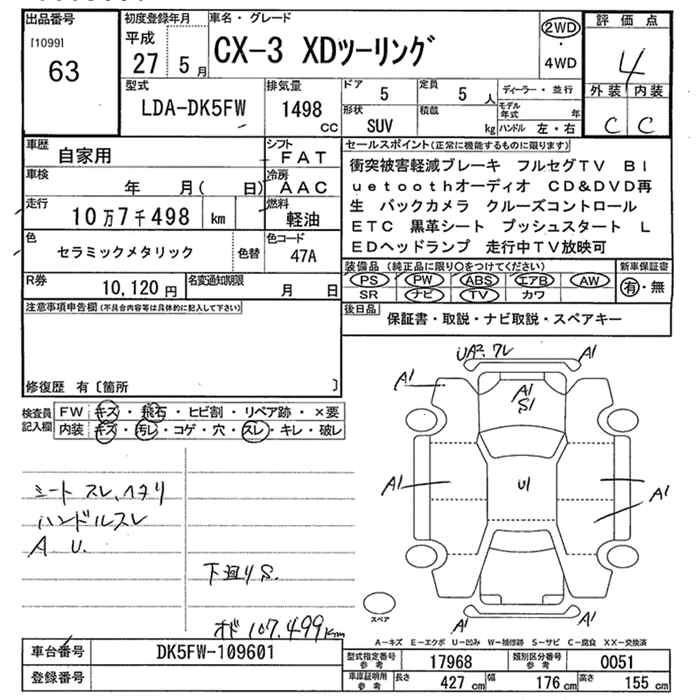 出品番号
[1099]
63
初度登録年月
平成
27 5 月
車名・グレード
CX-3 XDツーリング
2WD
・
4WD
評価点
4
外装 内装
C C
型式
LDA-DK5FW
排気量
1498
cc
ドア
5
定員
5 人
形状
SUV
積載
kg
ディーラー・並行
モデル年式
年
ハンドル 左・右
車歴
自家用
シフト
FAT
車検
年 月( 日)
冷房
AAC
走行
10万7千498 km
燃料
軽油
色
セラミックメタリック
色替
色コード
47A
R券
10,120 円
名変通知期限
月 日
セールスポイント(正常に機能するものに限ります)
衝突被害軽減ブレーキ フルセグTV Bl
uetoothオーディオ CD&DVD再
生 バックカメラ クルーズコントロール
ETC 黒革シート プッシュスタート L
EDヘッドランプ 走行中TV放映可
装備品(純正品に限り○をつけてください)
新車保証書
PS PW ABS エアB AW
SR ナビ TV カワ
有・無
後日品
保証書・取説・ナビ取説・スペアキー
注意事項申告欄(不具合内容等は具体的に記入して下さい)
修復歴 有〔箇所 〕
検査員
記入欄
FW キズ・飛石・ヒビ割・リペア跡・×要
内装 キズ・汚レ・コゲ・穴・スレ・キレ・破レ
シート スレ、ヘタリ
ハンドルスレ
A U.
下廻りS.
オド 107,499km
UA2. ワレ
A1
A1
A1
S1
A1
U1
A1
A1
A1
スペア
A-キズ E-エクボ U-凹み W-補修跡 S-サビ C-腐食 XX-交換済
車台番号
DK5FW-109601
登録番号
型式指定番号
参考
17968
類別区分番号
参考
0051
車庫証明用
参考
長さ
427 cm
幅
176 cm
高さ
155 cm